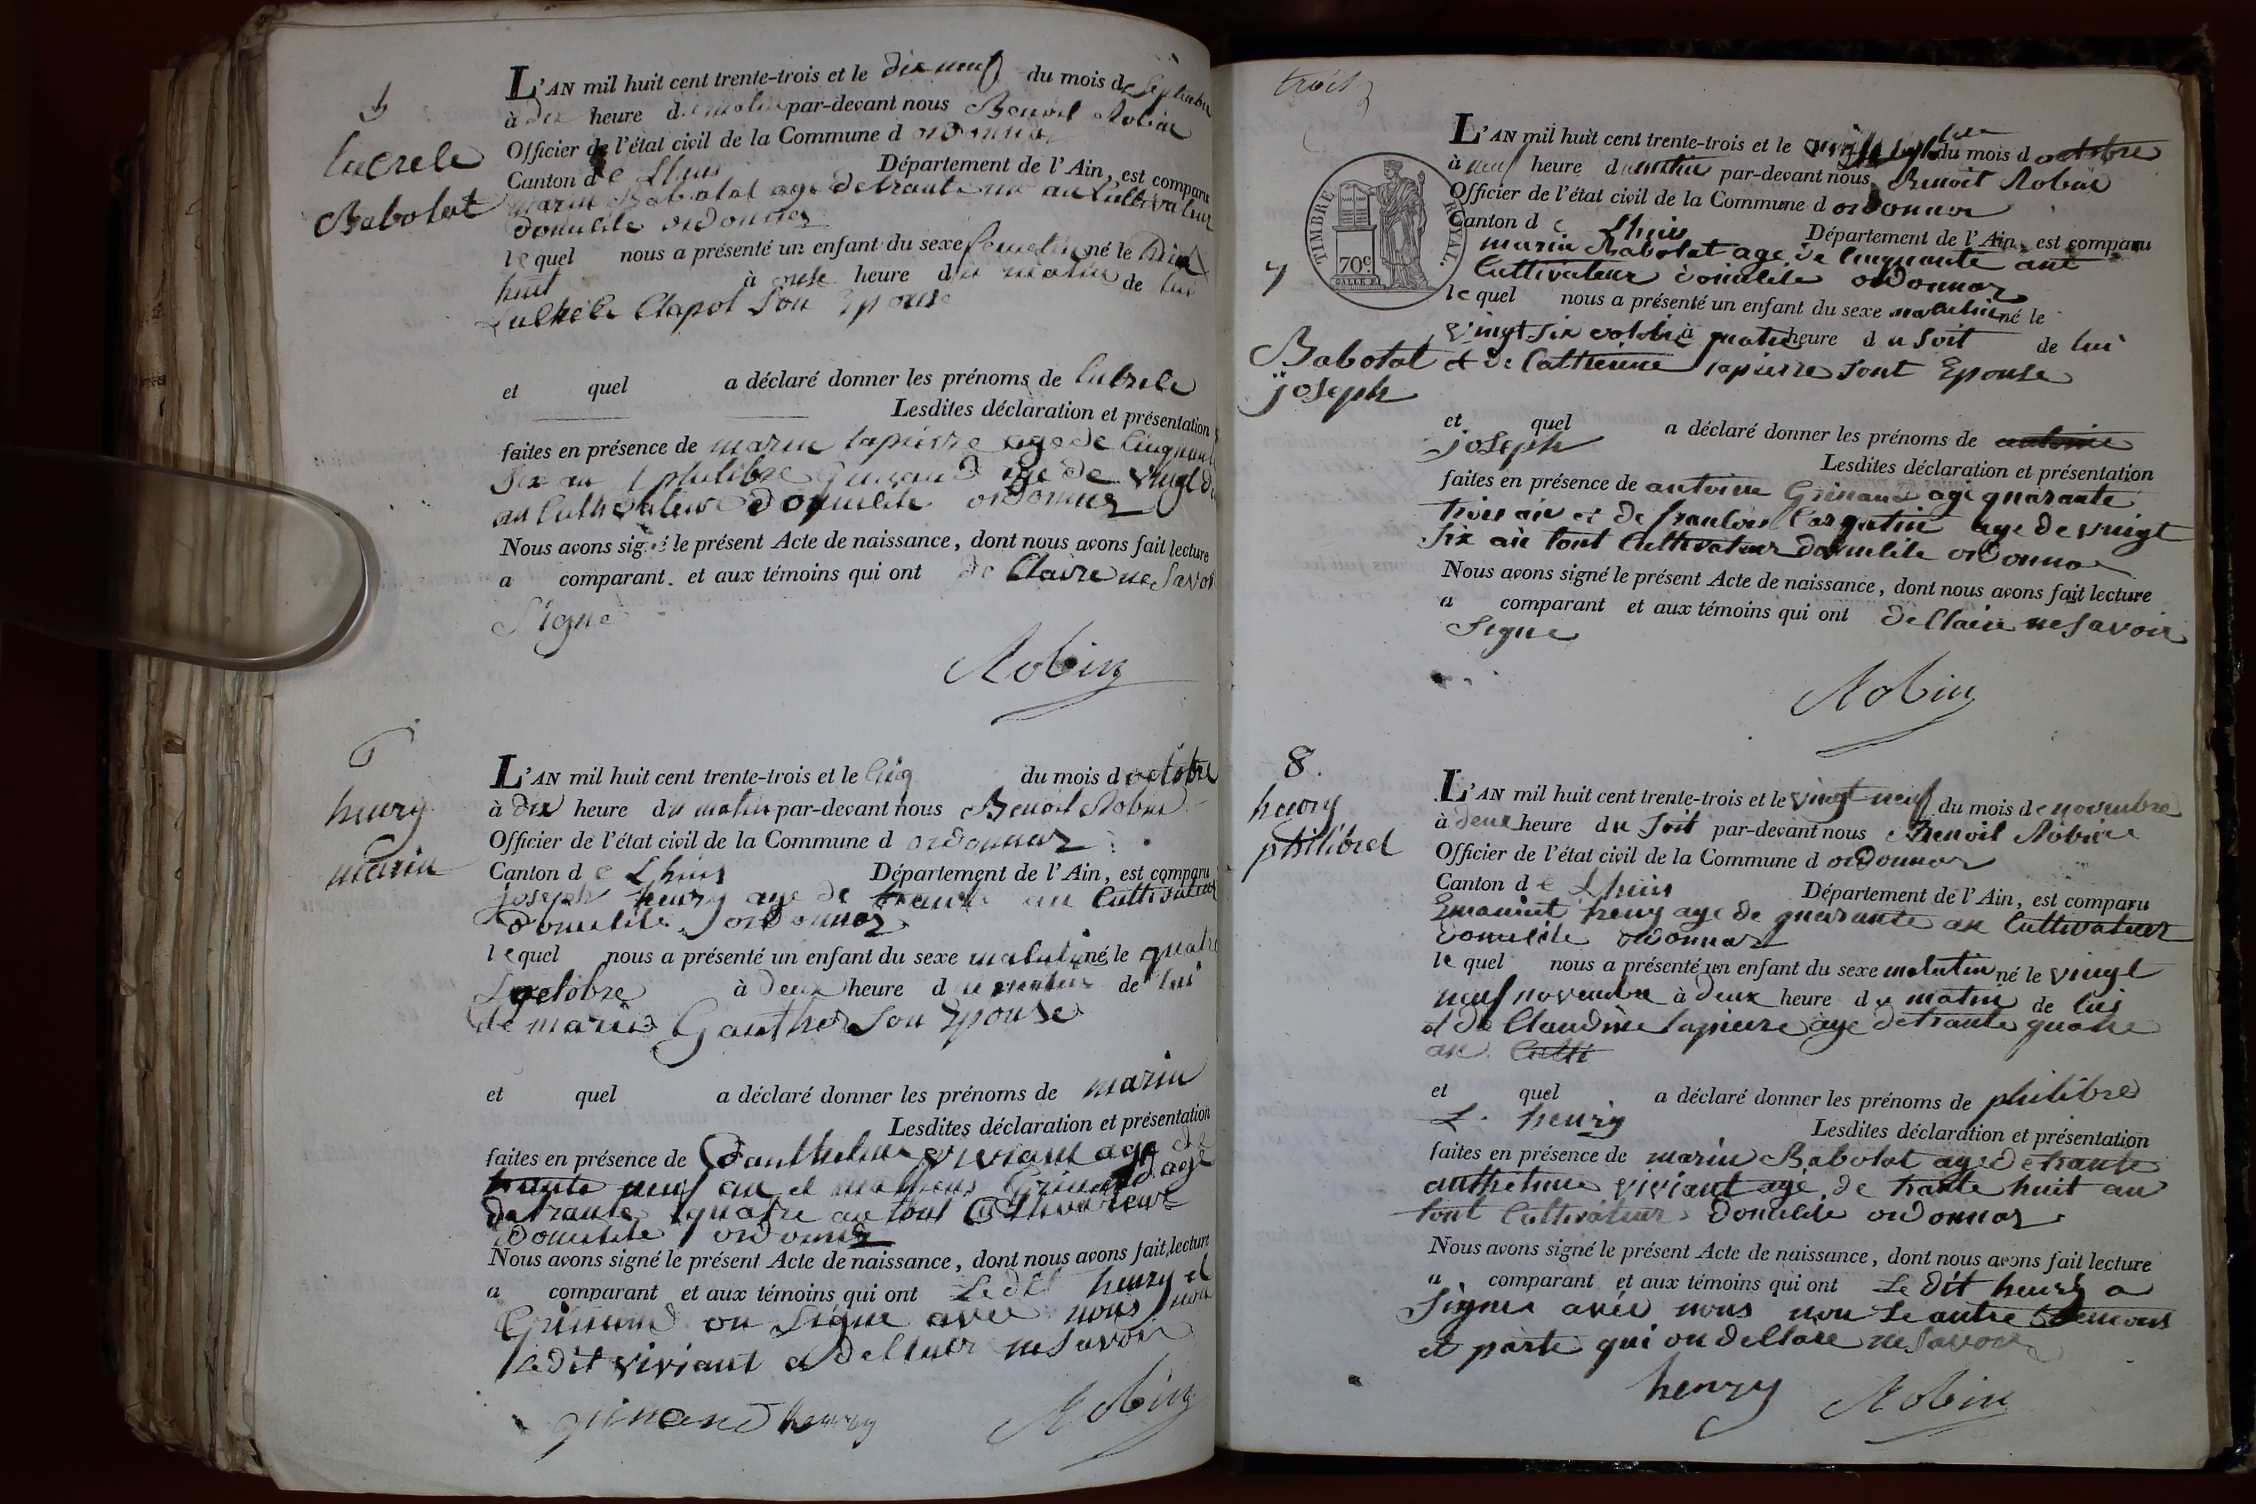 5
lucrele
Babolat
L'AN mil huit cent trente-trois et le dix neuf du mois de septembre
à dix heure du matin par-devant nous Benoit Robin
Officier de l'état civil de la Commune d ordonnaz
Canton de Lhuis Département de l'Ain, est comparu
marin Babolat age de trante un an Cultivateur
domicile ordonnaz
lequel nous a présenté un enfant du sexe né le dix
huit à onse heure du matin de lui
Clapot son Epouse
et quel a déclaré donner les prénoms de lucrele
Lesdites déclaration et présentation
faites en présence de marin lapierre age de Cinquante
six an philibre age de vingt
an domicile ordonnaz
Nous avons signé le présent Acte de naissance, dont nous avons fait lecture
a comparant. et aux témoins qui ont de Claire ne savoir
Signe
Robin
6
henry
marin
L'AN mil huit cent trente-trois et le Cinq du mois d octobre
à dix heure du matin par-devant nous Benoit Robin
Officier de l'état civil de la Commune d ordonnaz
Canton de Lhuis Département de l'Ain, est comparu
joseph henry age de trante an Cultivateur
domicile ordonnaz
lequel nous a présenté un enfant du sexe né le quatre
octobre à deux heure du matin de lui
de marie Gauthier son Epouse
et quel a déclaré donner les prénoms de marin
Lesdites déclaration et présentation
faites en présence de viviant age de
trante neuf an et Grinand age
de trante quatre an tout Cultivateur
domicile ordonnaz
Nous avons signé le présent Acte de naissance, dont nous avons fait lecture
a comparant et aux témoins qui ont Le dit henry et
Grinand on Signe avec nous non
Le dit viviant a ne savoir
grinand henry Robin
trois
TIMBRE ROYAL.
70c
L'AN mil huit cent trente-trois et le du mois d octobre
à neuf heure du matin par-devant nous Benoit Robin
Officier de l'état civil de la Commune d ordonnaz
Canton de Lhuis Département de l'Ain, est comparu
marin Babolat age de Cinquante ant
Cultivateur domicile ordonnaz
7
lequel nous a présenté un enfant du sexe né le
vingt six octobre à quatre heure du soit de lui
Babolat
joseph
et de Catherinne lapierre sont Epouse
et quel a déclaré donner les prénoms de antoine
joseph
Lesdites déclaration et présentation
faites en présence de antoine Grinand age quarante
trois an et de age de vingt
six an tout Cultivateur domicile ordonnaz
Nous avons signé le présent Acte de naissance, dont nous avons fait lecture
a comparant et aux témoins qui ont de Claire ne savoir
Signe
Robin
8.
henry
philibret
L'AN mil huit cent trente-trois et le vingt neuf du mois de novembre
à deux heure du soit par-devant nous Benoit Robin
Officier de l'état civil de la Commune d ordonnaz
Canton de Lhuis Département de l'Ain, est comparu
henry age de quarante an Cultivateur
domicile ordonnaz
lequel nous a présenté un enfant du sexe né le vingt
neuf novembre à deux heure du matin de lui
et de Claudine lapierre age de trante quatre
an Culti
et quel a déclaré donner les prénoms de philibre
henry
Lesdites déclaration et présentation
faites en présence de marin Babolat age de trante
viviant age de trante huit an
tout Cultivateur domicile ordonnaz
Nous avons signé le présent Acte de naissance, dont nous avons fait lecture
a comparant et aux témoins qui ont Le dit henry a
Signe avec nous non Le autre
et parte qui on de Clare ne savoir
henry Robin